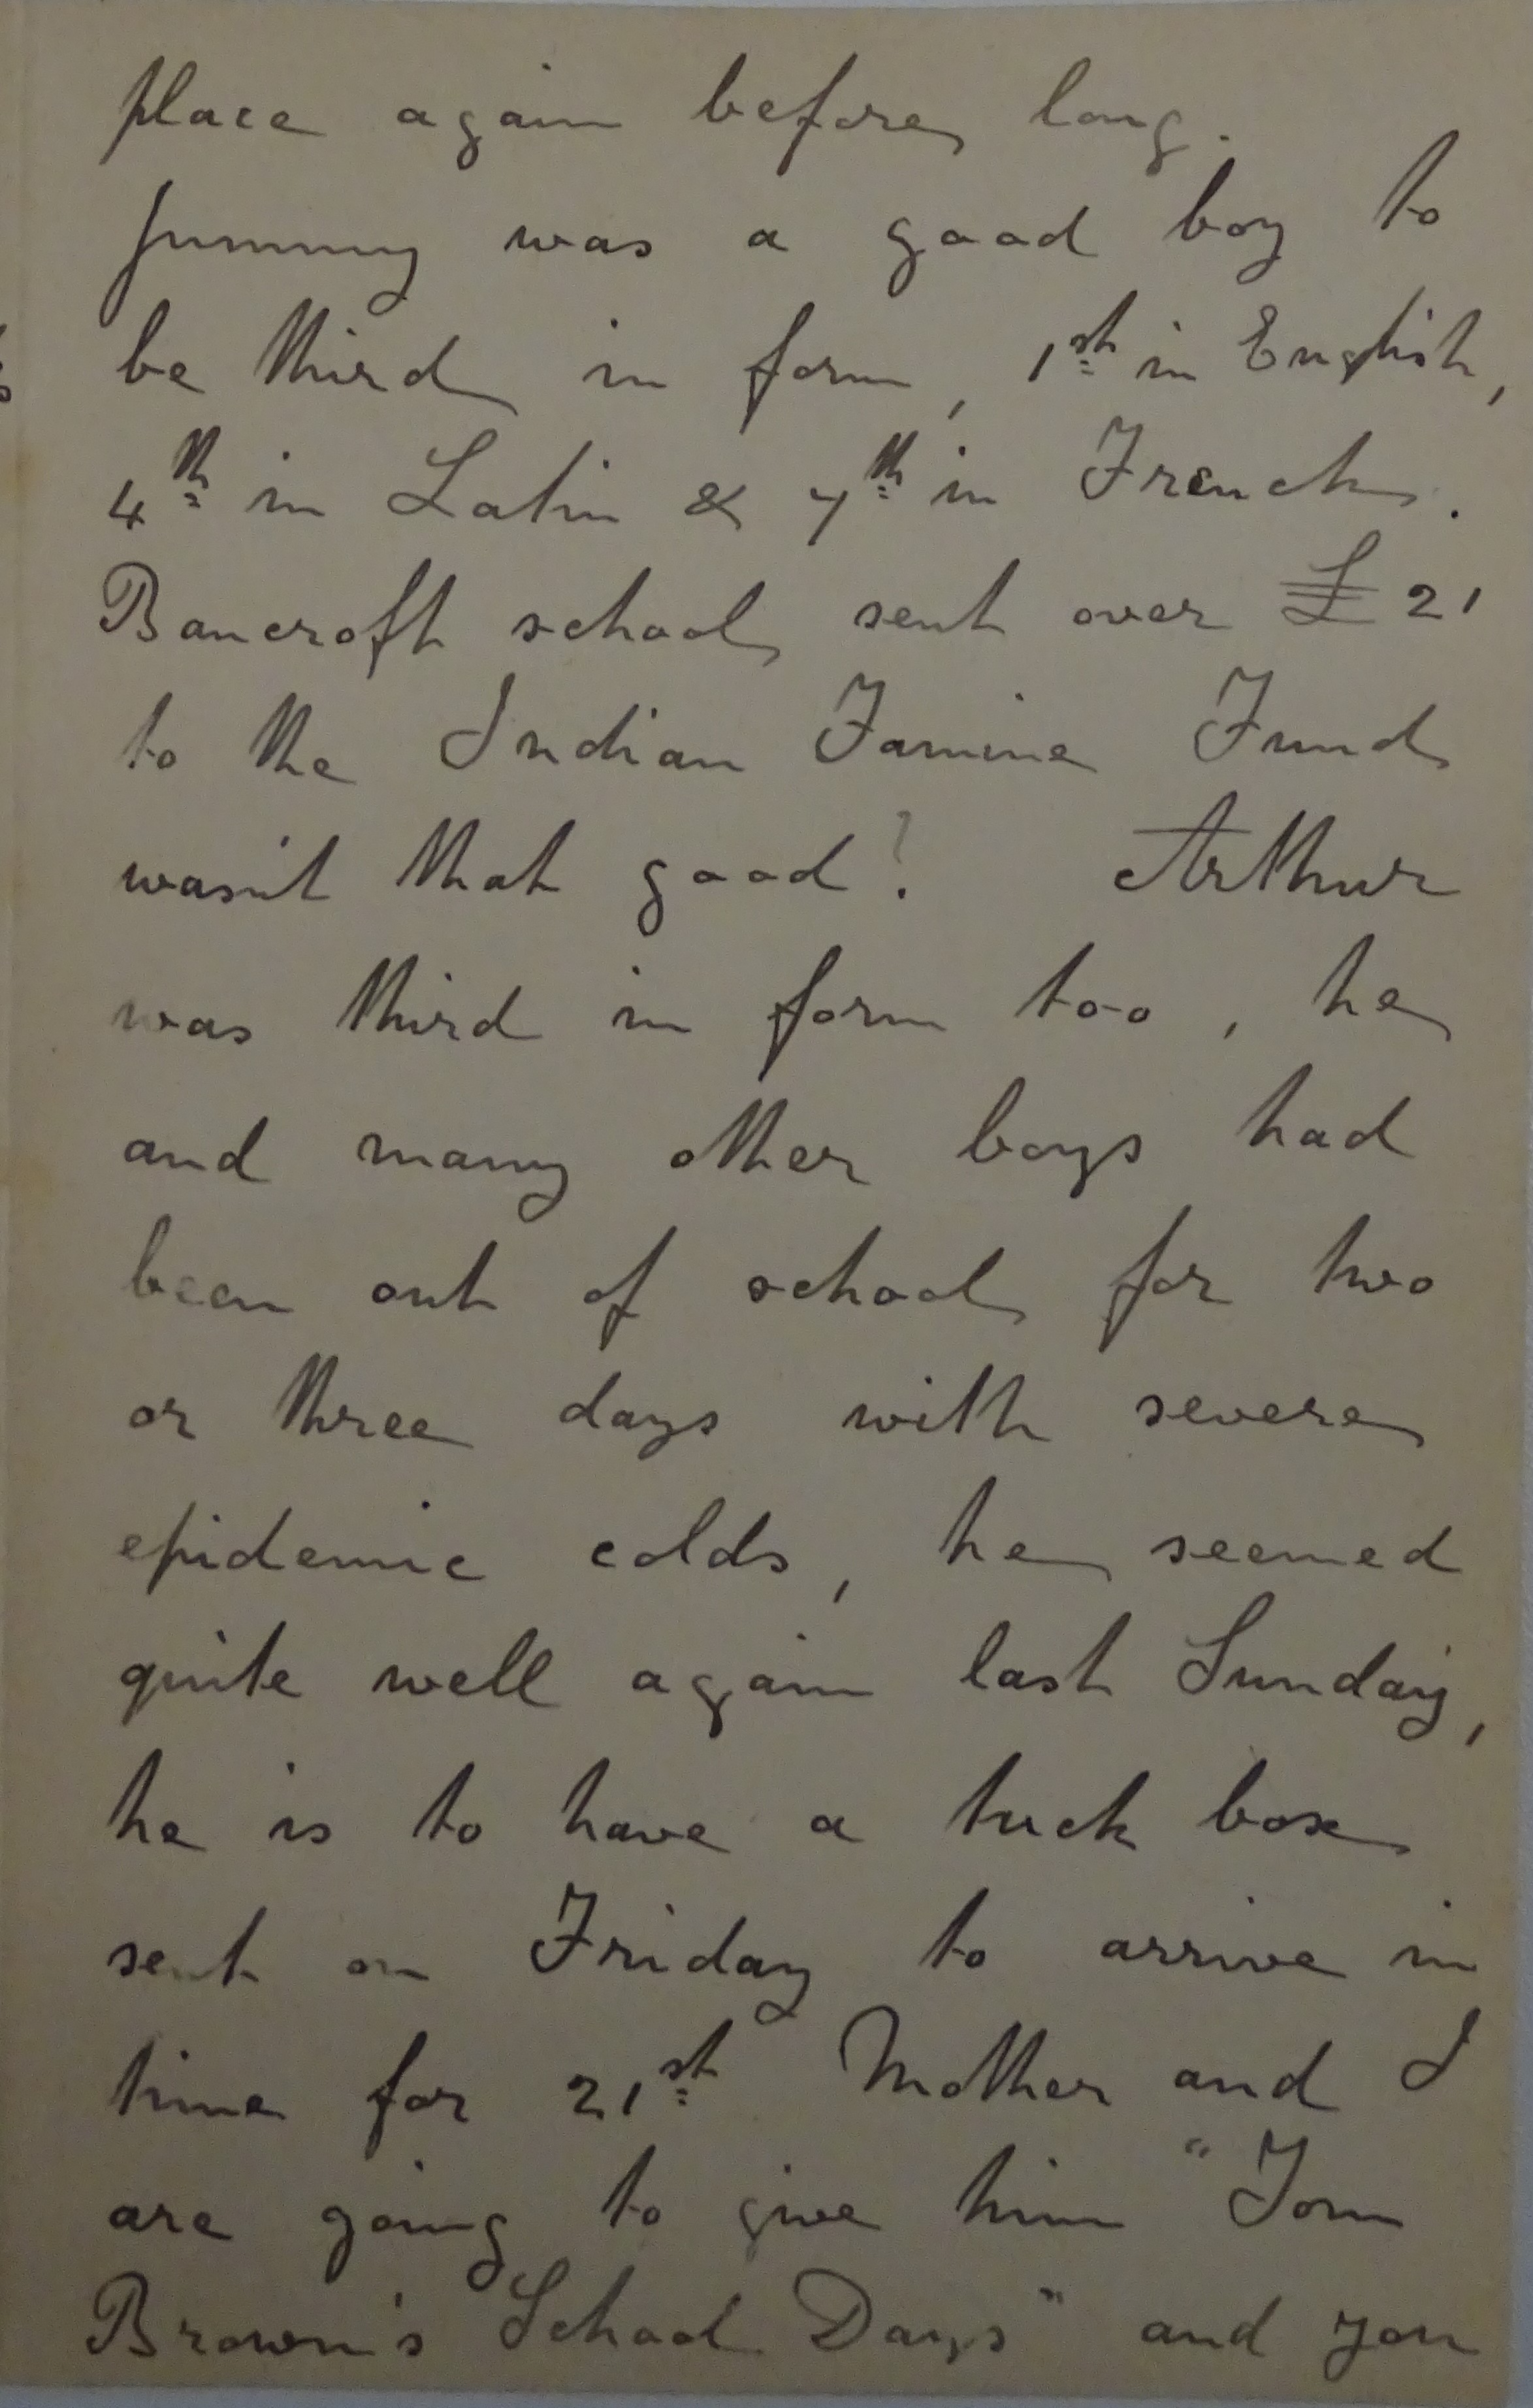 place again before long.
Jimmy was a good boy to
be third in form, 1st in English,
4th in Latin & 7th in French.
Bancroft school sent over £21
to the Indian Famine Fund
wasn't that good? Arthur
was third in form too, he
and many other boys had
been out of school for two
or three days with severe
epidemic colds, he seemed
quite well again last Sunday,
he is to have a tuck box
sent on Friday to arrive in
time for 21st Mother and I
are going to give him "Tom
Brown's School Days" and you